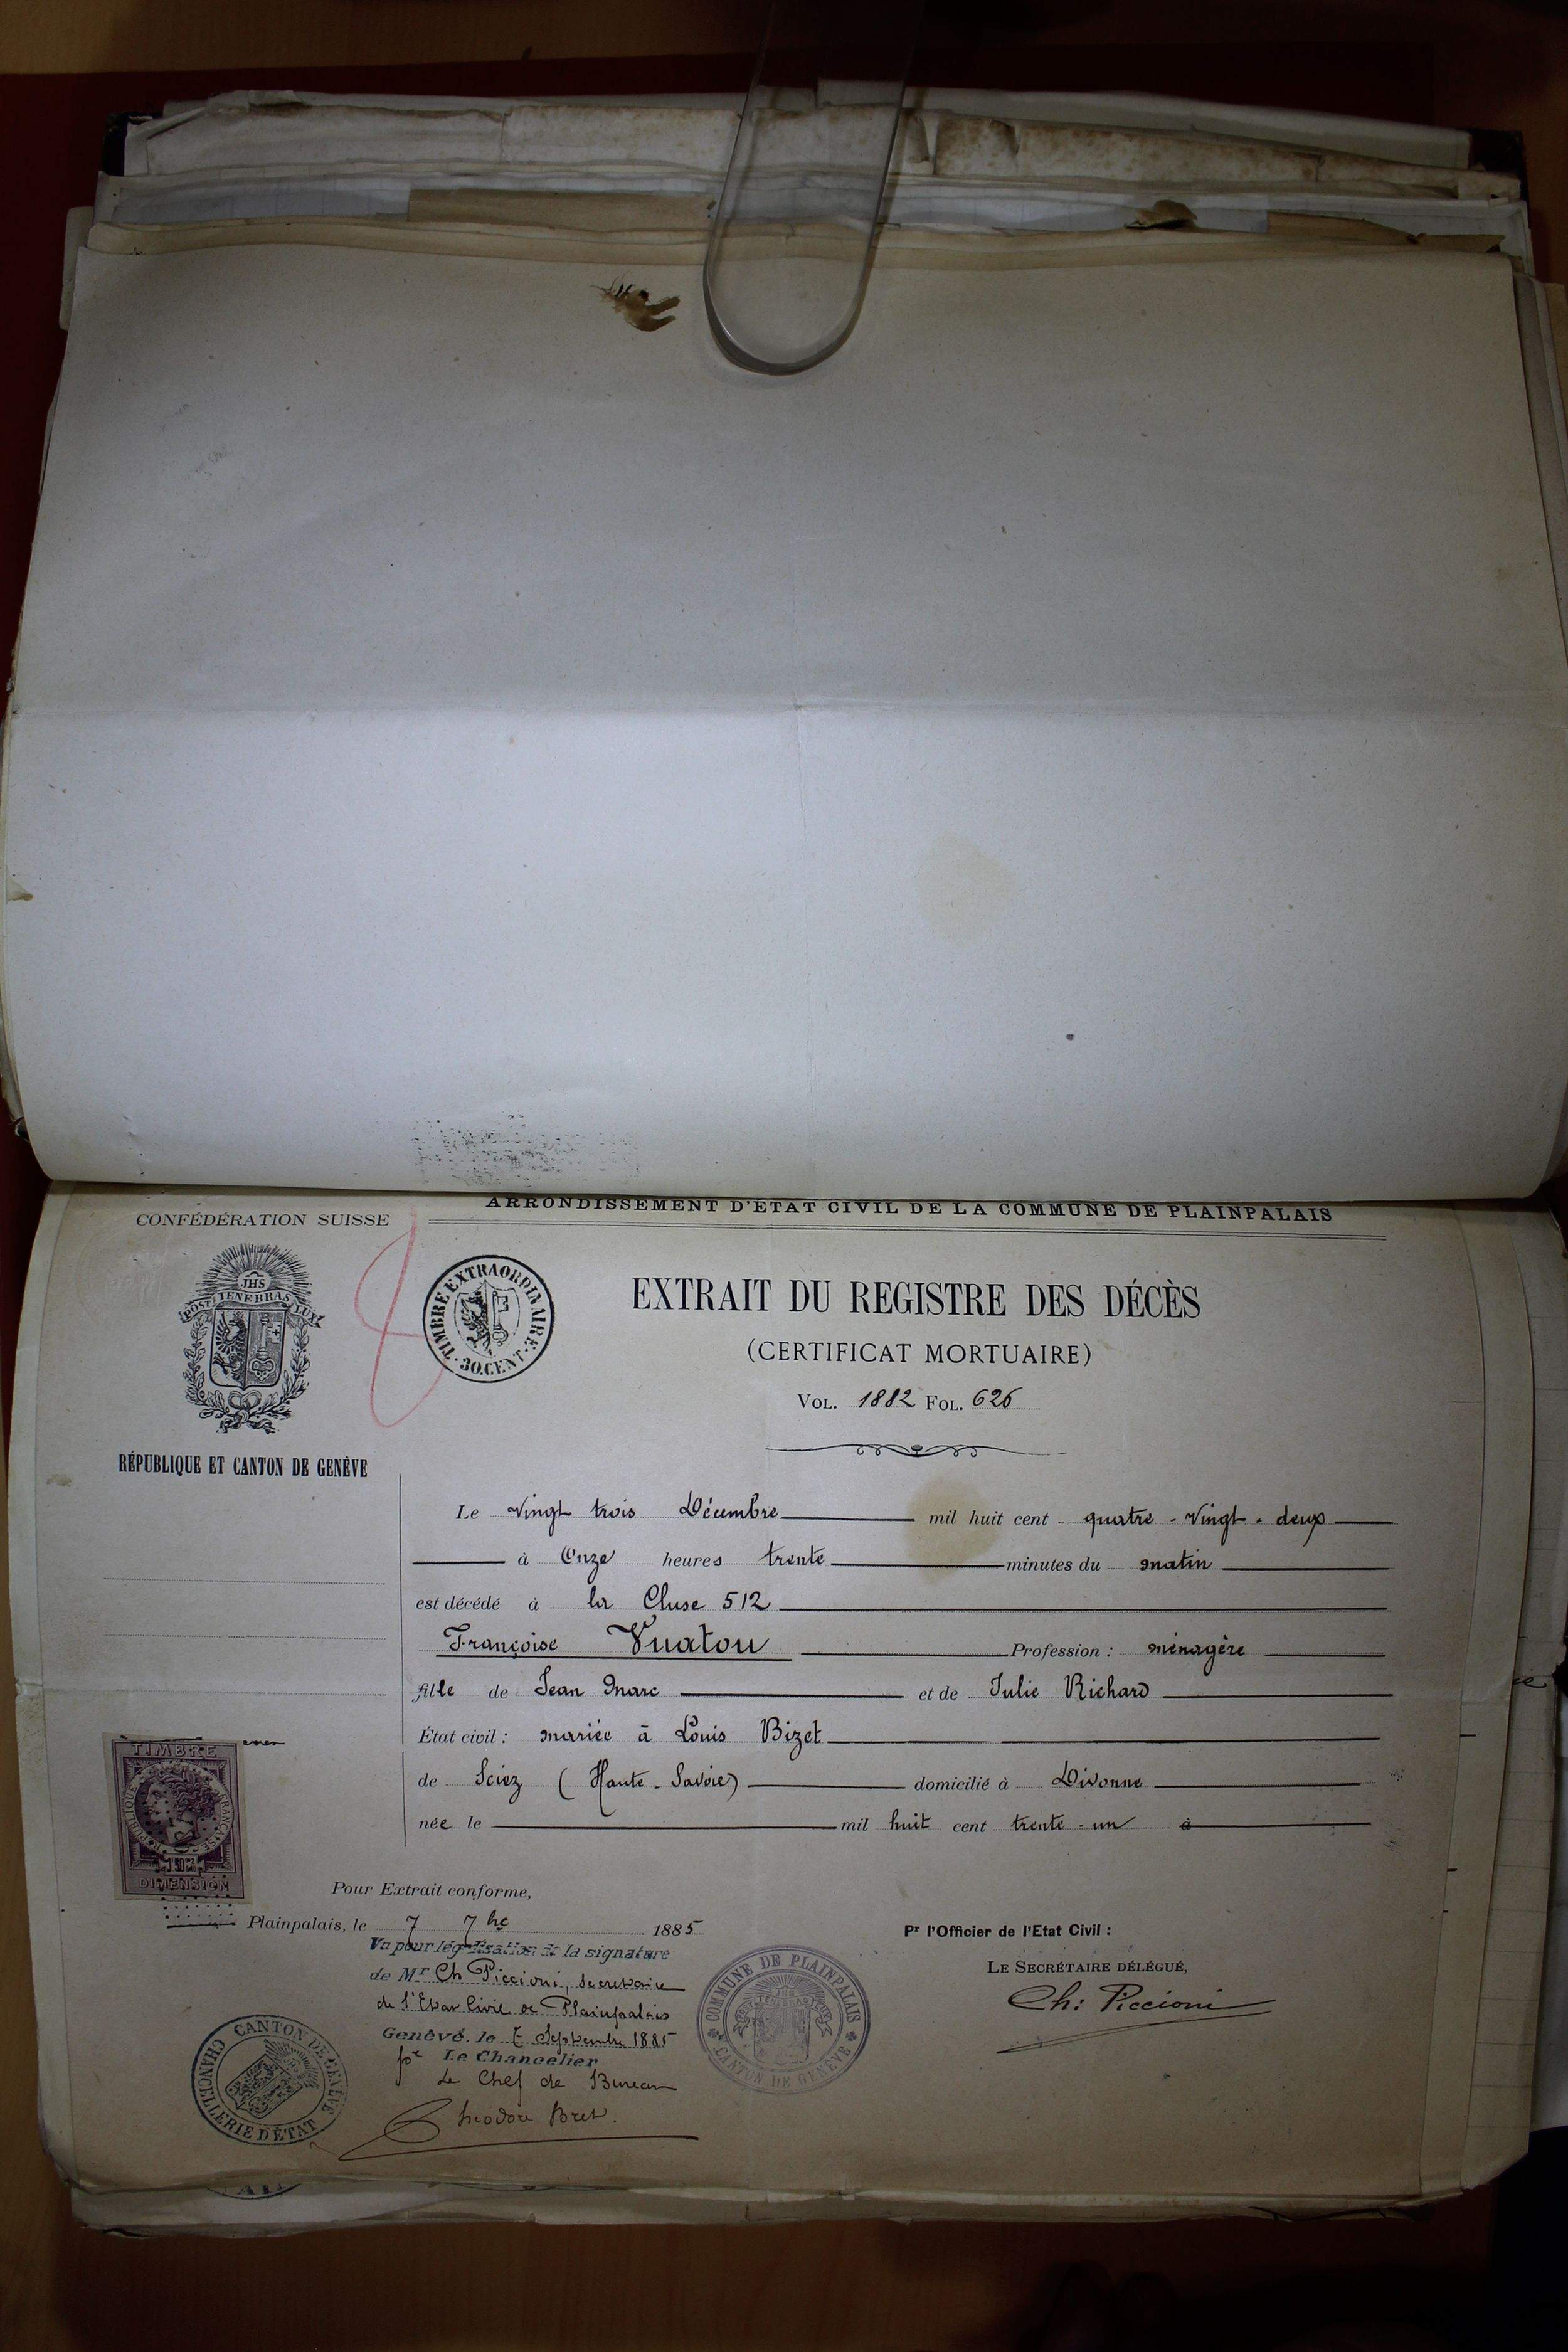 ARRONDISSEMENT D'ÉTAT CIVIL DE LA COMMUNE DE PLAINPALAIS
CONFÉDÉRATION SUISSE
JHS
POST TENEBRAS LUX
RÉPUBLIQUE ET CANTON DE GENÈVE
TIMBRE EXTRAORDINAIRE
30 CENT.
EXTRAIT DU REGISTRE DES DÉCÈS
(CERTIFICAT MORTUAIRE)
VOL. 1882 FOL. 626
Le vingt trois Décembre mil huit cent quatre-vingt-deux
à Onze heures trente minutes du matin
est décédé à la Cluse 512
Françoise Vuatou Profession : ménagère
fille de Jean Marc et de Julie Richard
État civil : mariée à Louis Bizet
de Sciez (Haute-Savoie) domicilié à Divonne
née le mil huit cent trente-un à
TIMBRE
RÉPUBLIQUE FRANÇAISE
DIMENSION
Pour Extrait conforme,
Plainpalais, le 7 7bre 1885
Vu pour légalisation de la signature
de Mr Ch Piccioni, Secretaire
de l'Etat Civil de Plainpalais
Genève, le 7 Septembre 1885
pr Le Chancelier
Le Chef de Bureau
Theodore Bret.
CANTON DE GENÈVE
CHANCELLERIE D'ÉTAT
COMMUNE DE PLAINPALAIS
CANTON DE GENÈVE
Pr l'Officier de l'Etat Civil :
LE SECRÉTAIRE DÉLÉGUÉ,
Ch: Piccioni